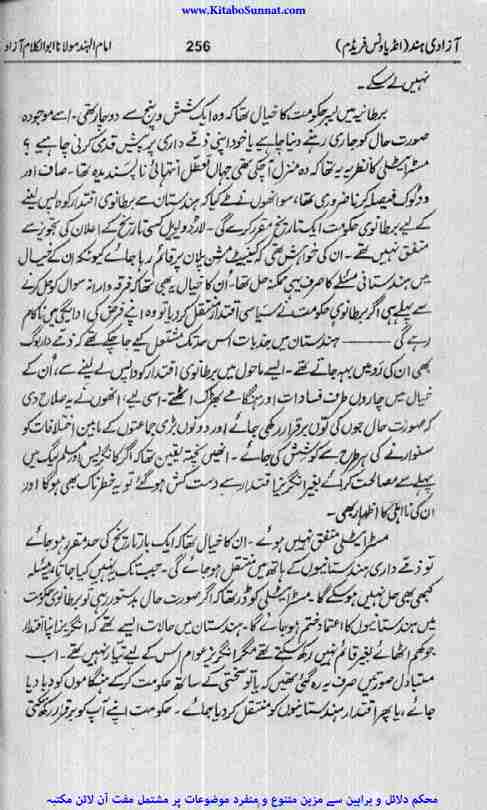 www.KitaboSunnat.com
آزادی ہند (انڈیا ونس فریڈم)
256
امام الہند مولانا ابوالکلام آزاد
نہیں لے سکے۔
برطانیہ میں لیبر حکومت کا خیال تھا کہ وہ ایک شش و پنج سے دوچار تھی۔ اسے موجودہ
صورت حال کو جاری رہنے دینا چاہیے یا خود اپنی ذمے داری پر پیش قدمی کرنی چاہیے ؟
مسٹر ایٹلی کا نظریہ یہ تھا کہ وہ منزل آ چکی تھی جہاں تعطل انتہائی ناپسندیدہ تھا۔ صاف اور
دو ٹوک فیصلہ کرنا ضروری تھا، سو انھوں نے طے کیا کہ ہندستان سے برطانوی اقتدار کو واپس لینے
کے لیے برطانوی حکومت ایک تاریخ مقرر کرے گی۔ لارڈ ویویل کسی تاریخ کے اعلان کی تجویز سے
متفق نہیں تھے۔ ان کی خواہش تھی کہ کیبنیٹ مشن پلان پر قائم رہا جائے کیونکہ ان کے خیال
میں ہندستانی مسئلے کا صرف یہی ممکنہ حل تھا۔ اُن کا خیال یہ بھی تھا کہ فرقہ وارانہ سوال کو حل کرنے
سے پہلے ہی اگر برطانوی حکومت نے سیاسی اقتدار منتقل کر دیا تو وہ اپنے فرض کی ادائیگی میں ناکام
رہے گی ——— ہندستان میں جذبات اس حد تک مشتعل کیے جا چکے تھے کہ ذمے دار لوگ
بھی ان کی رَو میں بہہ جاتے تھے۔ ایسے ماحول میں برطانوی اقتدار کو واپس لے لینے سے، اُن کے
خیال میں چاروں طرف فسادات اور ہنگامے بھڑک اٹھتے۔ اسی لیے، انھوں نے یہ صلاح دی
کہ صورت حال جوں کی توں برقرار رکھی جائے اور دونوں بڑی جماعتوں کے مابین اختلافات کو
سنوارنے کی ہر طرح سے کوشش کی جائے۔ انھیں پختہ یقین تھا کہ اگر کانگریس اور مسلم لیگ میں
پہلے سے مصالحت کرائے بغیر انگریز اقتدار سے دست کش ہو گئے تو یہ خطرناک بھی ہوگا اور
ان کی نااہلی کا اظہار بھی۔
مسٹر ایٹلی متفق نہیں ہوئے۔ ان کا خیال تھا کہ ایک بار تاریخ کی حد مقرر ہو جائے
تو ذمے داری ہندستانیوں کے ہاتھ میں منتقل ہو جائے گی۔ جب تک یہ نہیں کیا جاتا، یہ مسئلہ
کبھی بھی حل نہیں ہو سکے گا۔ مسٹر ایٹلی کو ڈر تھا کہ اگر صورت حال بدستور رہی تو برطانوی حکومت
میں ہندستانیوں کا اعتماد ختم ہو جائے گا۔ ہندستان میں حالات ایسے تھے کہ انگریز اپنا اقتدار
جوکھم اٹھائے بغیر قائم نہیں رکھ سکتے تھے مگر انگریز عوام اس کے لیے تیار نہیں تھے۔ اب
متبادل صورتیں صرف یہ رہ گئی تھیں کہ یا تو سختی کے ساتھ حکومت کرکے ہنگاموں کو دبا دیا
جائے، یا پھر اقتدار ہندستانیوں کو منتقل کر دیا جائے۔ حکومت اپنے آپ کو برقرار رکھ سکتی
محکم دلائل و براہین سے مزین متنوع و منفرد موضوعات پر مشتمل مفت آن لائن مکتبہ